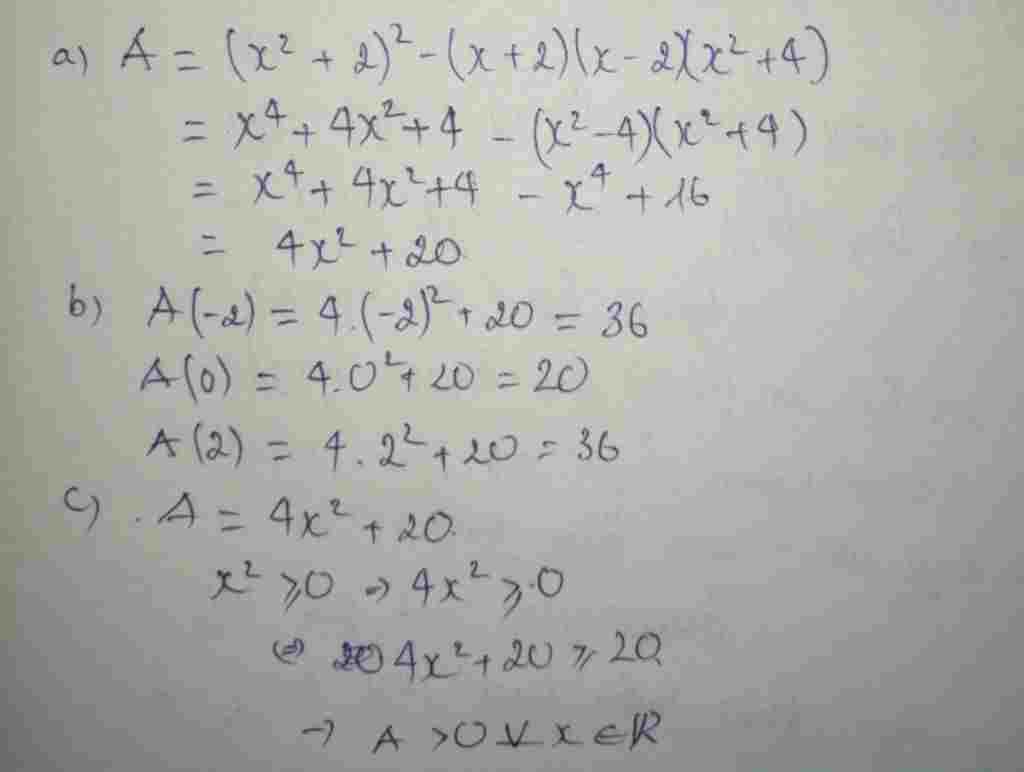 a) A = (x² + 2)² - (x + 2)(x - 2)(x² + 4)
= x⁴ + 4x² + 4 - (x² - 4)(x² + 4)
= x⁴ + 4x² + 4 - x⁴ + 16
= 4x² + 20
b) A(-2) = 4.(-2)² + 20 = 36
A(0) = 4.0² + 20 = 20
A(2) = 4.2² + 20 = 36
c) A = 4x² + 20
x² ≥ 0 → 4x² ≥ 0
⇔ 4x² + 20 ≥ 20
→ A > 0 ∀ x ∈ ℝ